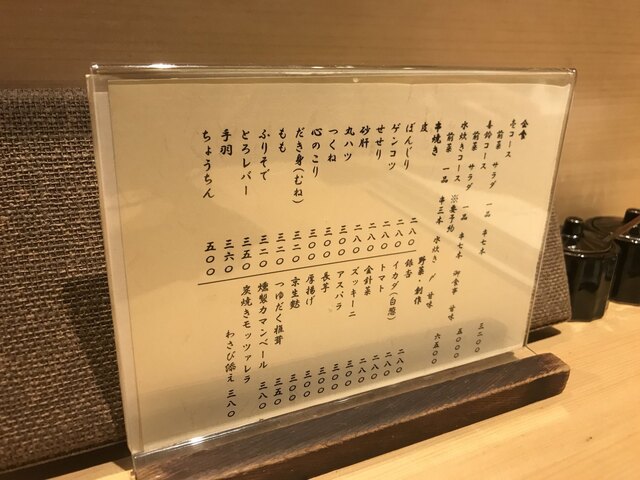 会食
壱コース
前菜 サラダ 一品 串七本 三二〇〇
喜鈴コース
前菜 サラダ 一品 串七本 御食事 甘味 五〇〇〇
水炊きコース ※要予約
前菜 一品 串三本 水炊き 〆 甘味 六五〇〇
串焼き
皮 二八〇
ぼんじり 二八〇
ゲンコツ 二八〇
せせり 二八〇
砂肝 二八〇
丸ハツ 三〇〇
つくね 三〇〇
心のこり 三〇〇
だき身(むね) 三二〇
もも 三二〇
ふりそで 三二〇
とろレバー
手羽 三六〇
ちょうちん 五〇〇
野菜 創作
銀杏 二八〇
イカダ(白葱) 二八〇
トマト 二八〇
金針菜 二八〇
ズッキーニ 三〇〇
アスパラ 三〇〇
長芋 三〇〇
厚揚げ 三〇〇
京生麩 三〇〇
つゆだく椎茸 三五〇
燻製カマンベール 三八〇
炭焼きモッツァレラ
わさび添え 三八〇